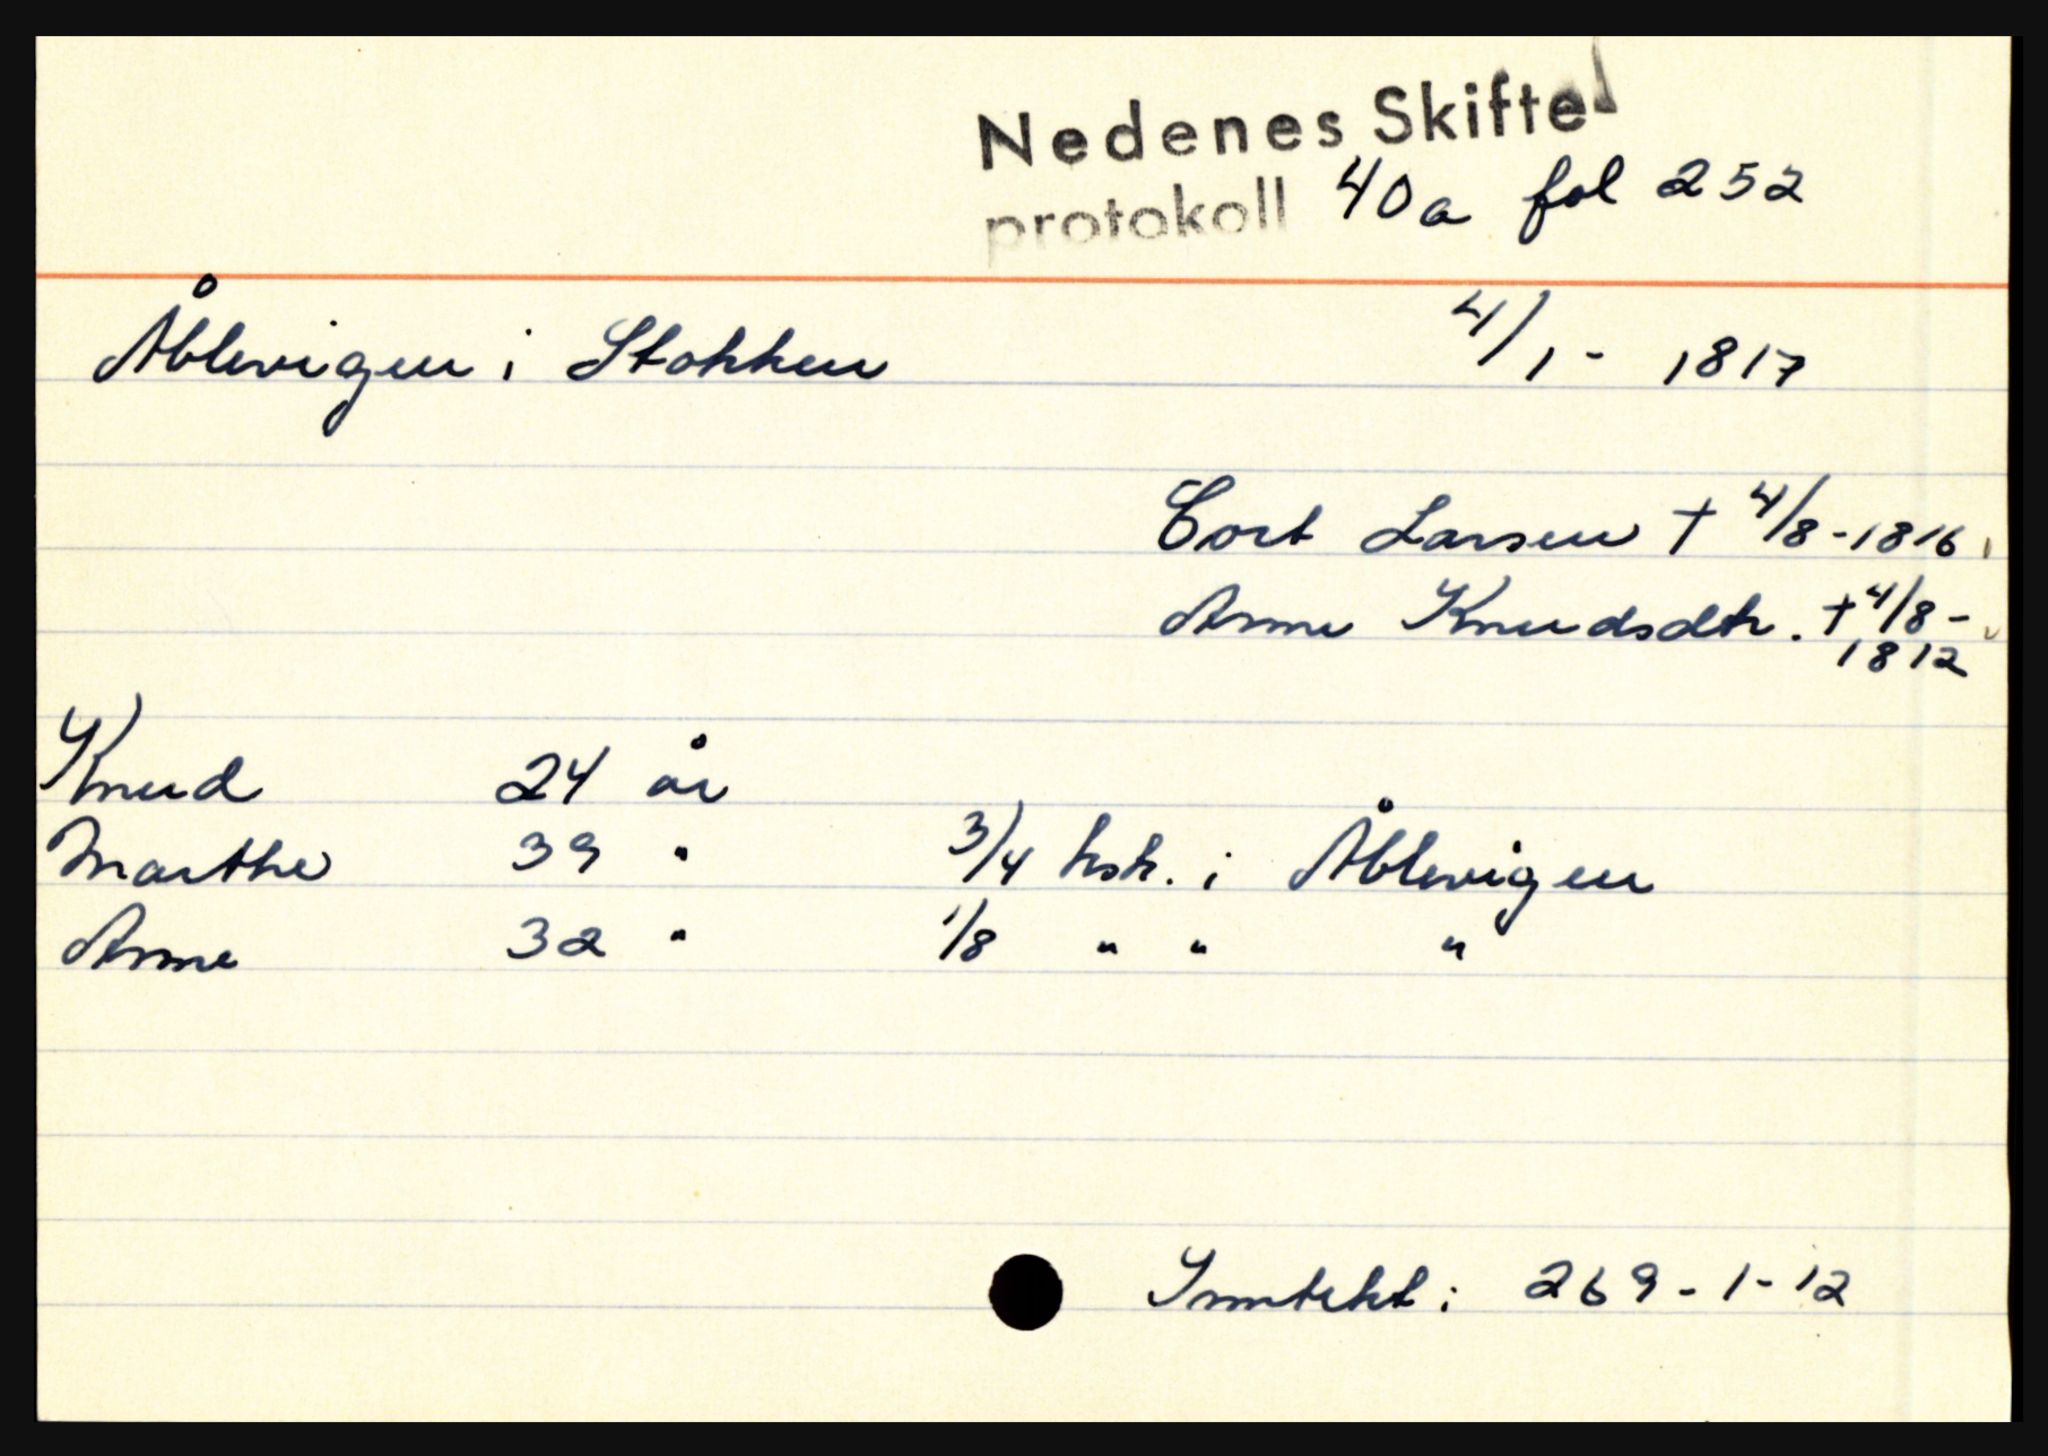 Nedenes Skifte
protokoll 40a fol 252
Åblevigen i Stokken 4/1 - 1817
Cort Larsen † 4/8 - 1816
Anne Knudsdtr. † 4/8 -
1812
Knud 24 år
Marthe 39 " 3/4 hsh. i Åblevigen
Anne 32 " 1/8 " " "
Inntekt: 269 - 1 - 12